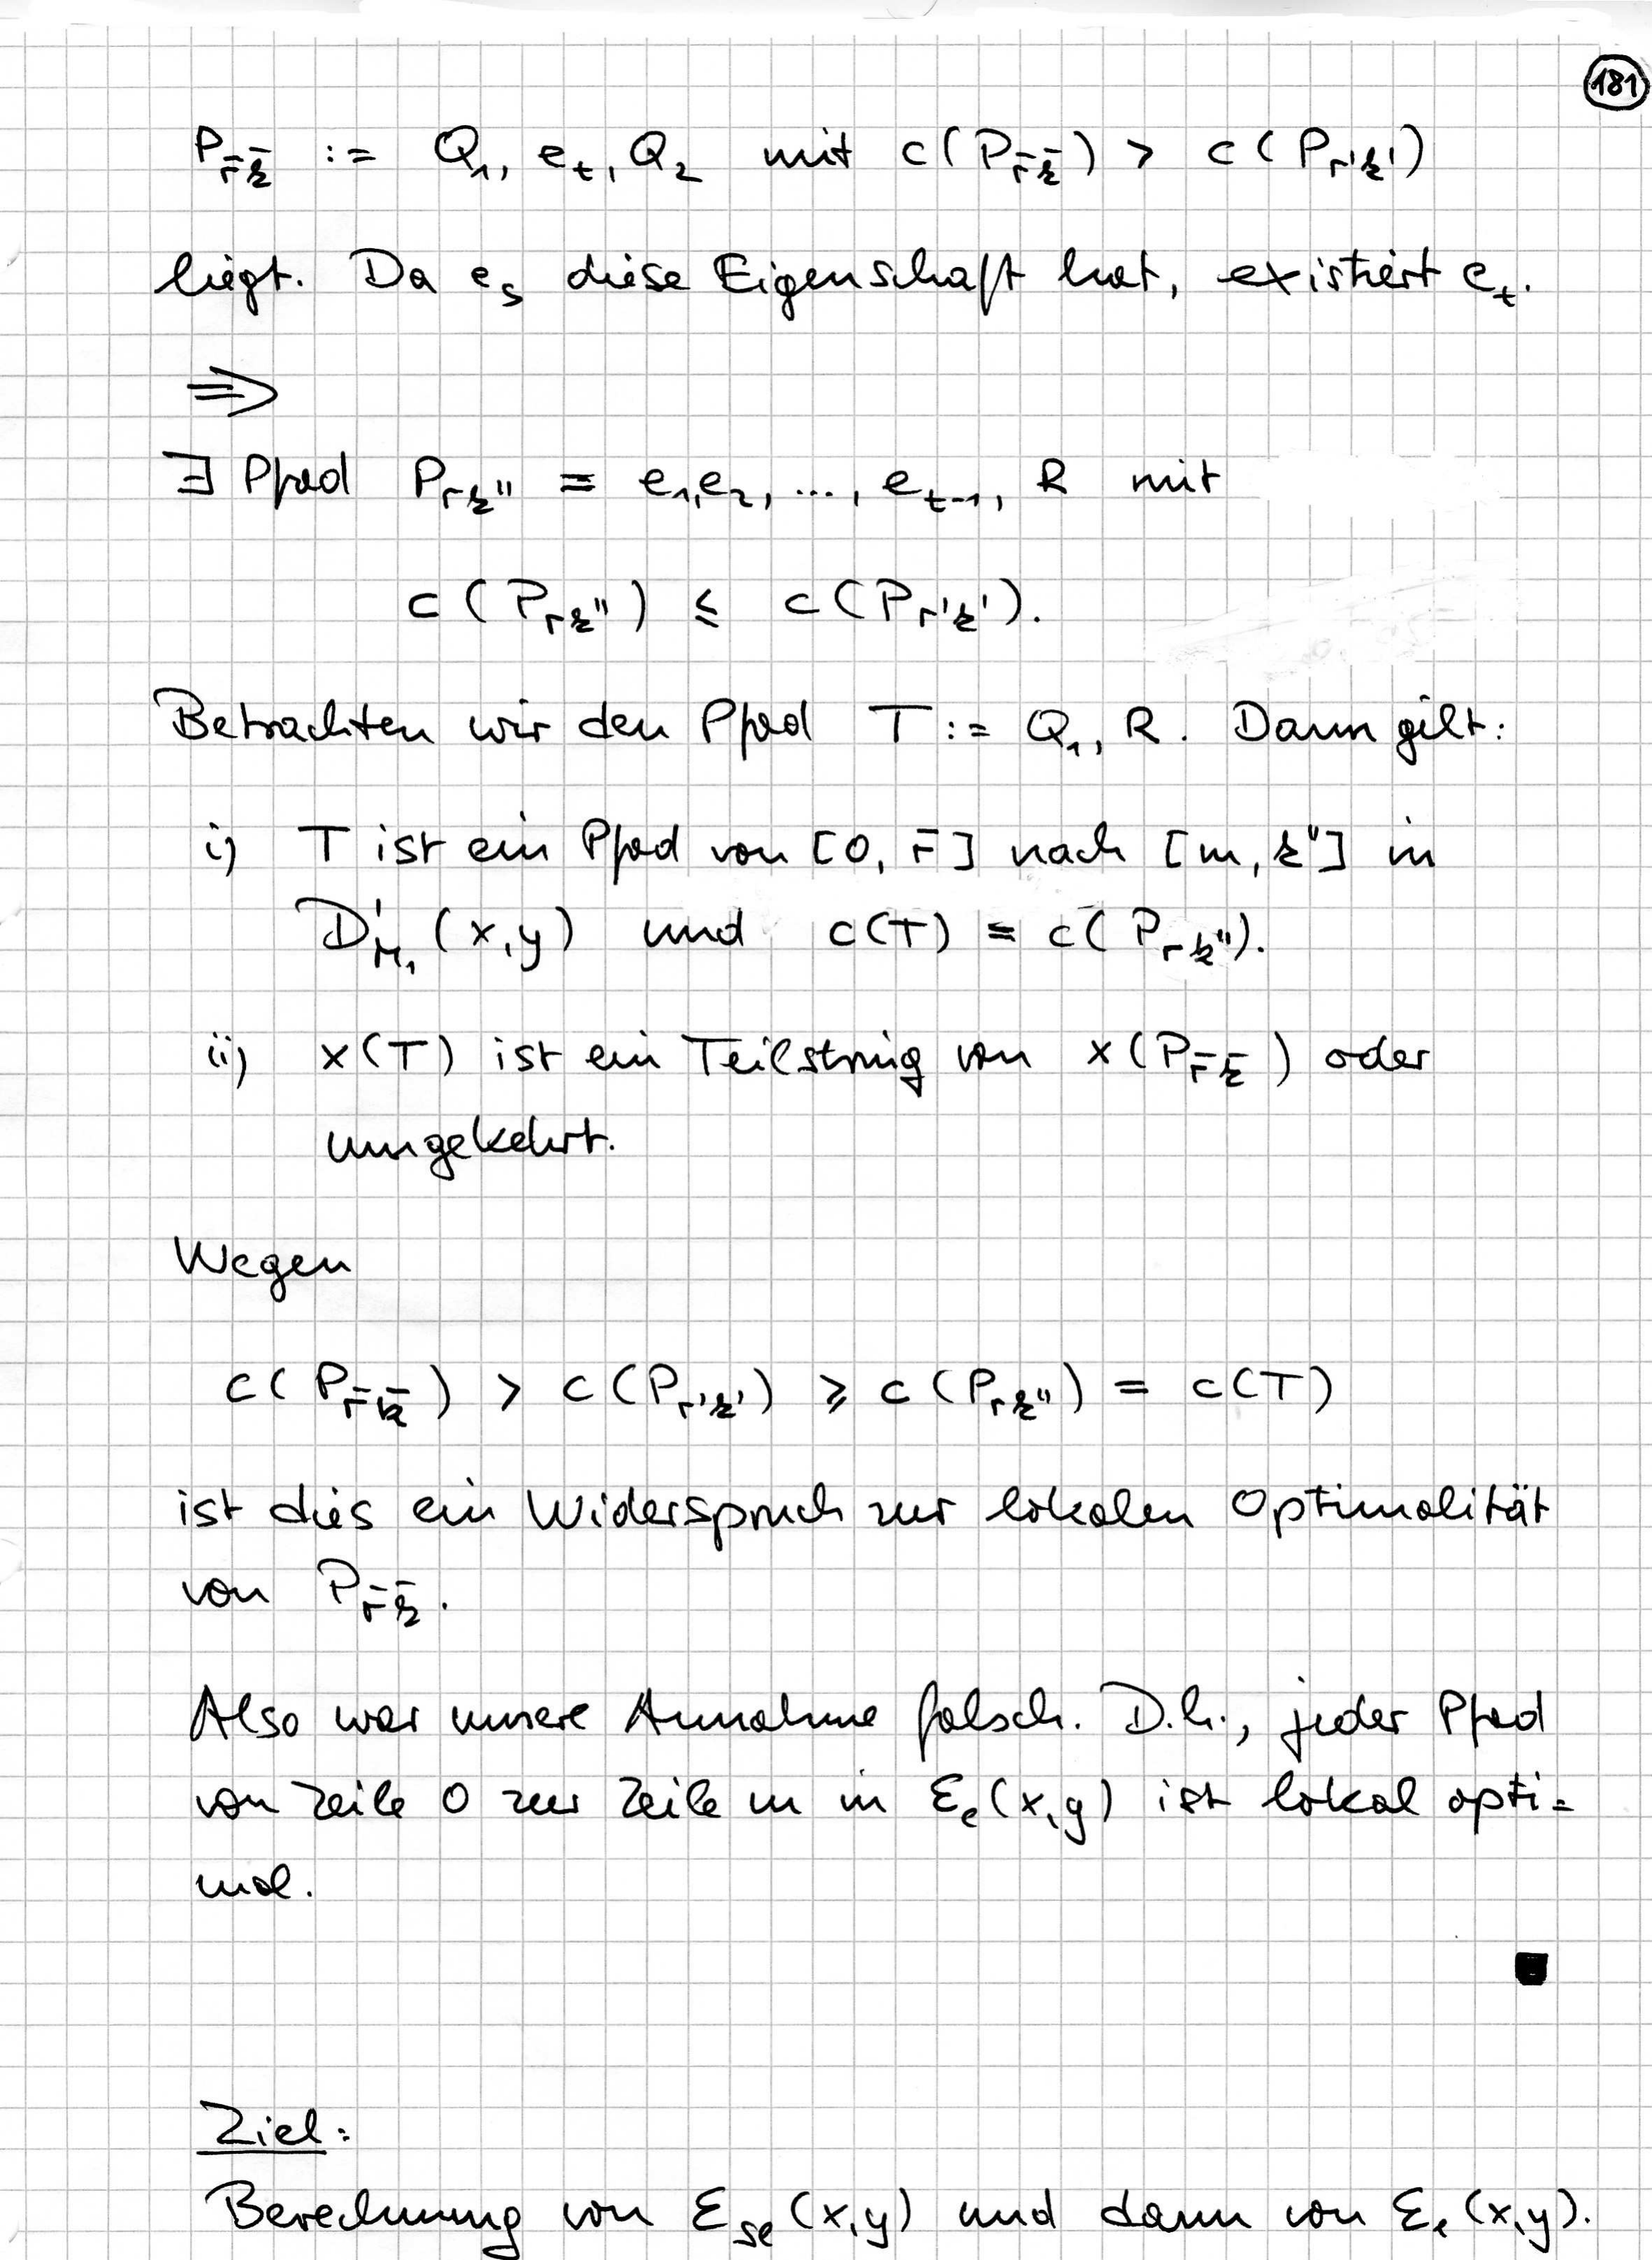 181
P_{r̄k̄} := Q₁, e_t, Q₂ mit c(P_{r̄k̄}) > c(P_{r'k'})
liegt. Da e_s diese Eigenschaft hat, existiert e_t.
⇒
∃ Pfad P_{rk''} = e₁,e₂, ..., e_{t-1}, R mit
c(P_{rk''}) ≤ c(P_{r'k'}).
Betrachten wir den Pfad T := Q₁, R. Dann gilt:
i) T ist ein Pfad von [0, r̄] nach [m, k''] in
D'_{M₁}(x,y) und c(T) = c(P_{rk''}).
ii) x(T) ist ein Teilstring von x(P_{r̄k̄}) oder
umgekehrt.
Wegen
c(P_{r̄k̄}) > c(P_{r'k'}) ≥ c(P_{rk''}) = c(T)
ist dies ein Widerspruch zur lokalen Optimalität
von P_{r̄k̄}.
Also war unsere Annahme falsch. D.h., jeder Pfad
von Zeile 0 zur Zeile m in ℰ_e(x,y) ist lokal opti=
mal.
Ziel:
Berechnung von ℰ_{se}(x,y) und dann von ℰ_e(x,y).